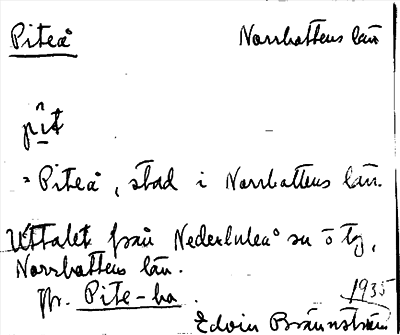 Piteå Norrbottens län
pît
= Piteå, stad i Norrbottens län.
Uttalet från Nederluleå sn o ty,
Norrbottens län.
Jfr. Pite-bo.
1935
Edvin Brännström